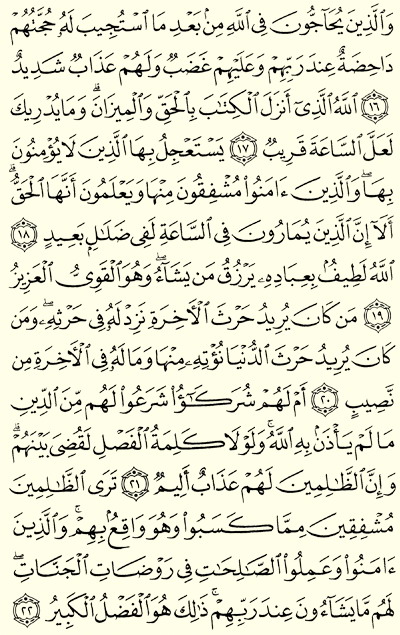 وَٱلَّذِينَ يُحَآجُّونَ فِى ٱللَّهِ مِنۢ بَعْدِ مَا ٱسْتُجِيبَ لَهُۥ حُجَّتُهُمْ
دَاحِضَةٌ عِندَ رَبِّهِمْ وَعَلَيْهِمْ غَضَبٌ وَلَهُمْ عَذَابٌ شَدِيدٌ
﴿١٦﴾ ٱللَّهُ ٱلَّذِىٓ أَنزَلَ ٱلْكِتَٰبَ بِٱلْحَقِّ وَٱلْمِيزَانَ ۗ وَمَا يُدْرِيكَ
لَعَلَّ ٱلسَّاعَةَ قَرِيبٌ ﴿١٧﴾ يَسْتَعْجِلُ بِهَا ٱلَّذِينَ لَا يُؤْمِنُونَ
بِهَا ۖ وَٱلَّذِينَ ءَامَنُوا۟ مُشْفِقُونَ مِنْهَا وَيَعْلَمُونَ أَنَّهَا ٱلْحَقُّ ۗ
أَلَآ إِنَّ ٱلَّذِينَ يُمَارُونَ فِى ٱلسَّاعَةِ لَفِى ضَلَٰلٍۭ بَعِيدٍ ﴿١٨﴾
ٱللَّهُ لَطِيفٌۢ بِعِبَادِهِۦ يَرْزُقُ مَن يَشَآءُ ۖ وَهُوَ ٱلْقَوِىُّ ٱلْعَزِيزُ
﴿١٩﴾ مَن كَانَ يُرِيدُ حَرْثَ ٱلْءَاخِرَةِ نَزِدْ لَهُۥ فِى حَرْثِهِۦ ۖ وَمَن
كَانَ يُرِيدُ حَرْثَ ٱلدُّنْيَا نُؤْتِهِۦ مِنْهَا وَمَا لَهُۥ فِى ٱلْءَاخِرَةِ مِن
نَّصِيبٍ ﴿٢٠﴾ أَمْ لَهُمْ شُرَكَٰٓؤُا۟ شَرَعُوا۟ لَهُم مِّنَ ٱلدِّينِ
مَا لَمْ يَأْذَنۢ بِهِ ٱللَّهُ ۚ وَلَوْلَا كَلِمَةُ ٱلْفَصْلِ لَقُضِىَ بَيْنَهُمْ ۗ
وَإِنَّ ٱلظَّٰلِمِينَ لَهُمْ عَذَابٌ أَلِيمٌ ﴿٢١﴾ تَرَى ٱلظَّٰلِمِينَ
مُشْفِقِينَ مِمَّا كَسَبُوا۟ وَهُوَ وَاقِعٌۢ بِهِمْ ۗ وَٱلَّذِينَ
ءَامَنُوا۟ وَعَمِلُوا۟ ٱلصَّٰلِحَٰتِ فِى رَوْضَاتِ ٱلْجَنَّاتِ ۖ
لَهُم مَّا يَشَآءُونَ عِندَ رَبِّهِمْ ۚ ذَٰلِكَ هُوَ ٱلْفَضْلُ ٱلْكَبِيرُ ﴿٢٢﴾